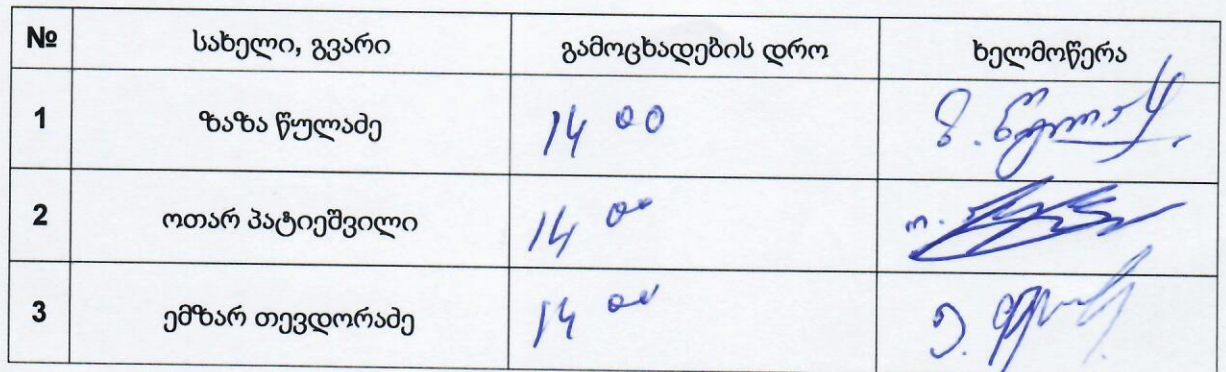 № სახელი, გვარი გამოცხადების დრო ხელმოწერა
1 ზაზა წულაძე 14 00 ზ. წულაძე
2 ოთარ პატიეშვილი 14 00 ო.
3 ემზარ თევდორაძე 14 00 ე.